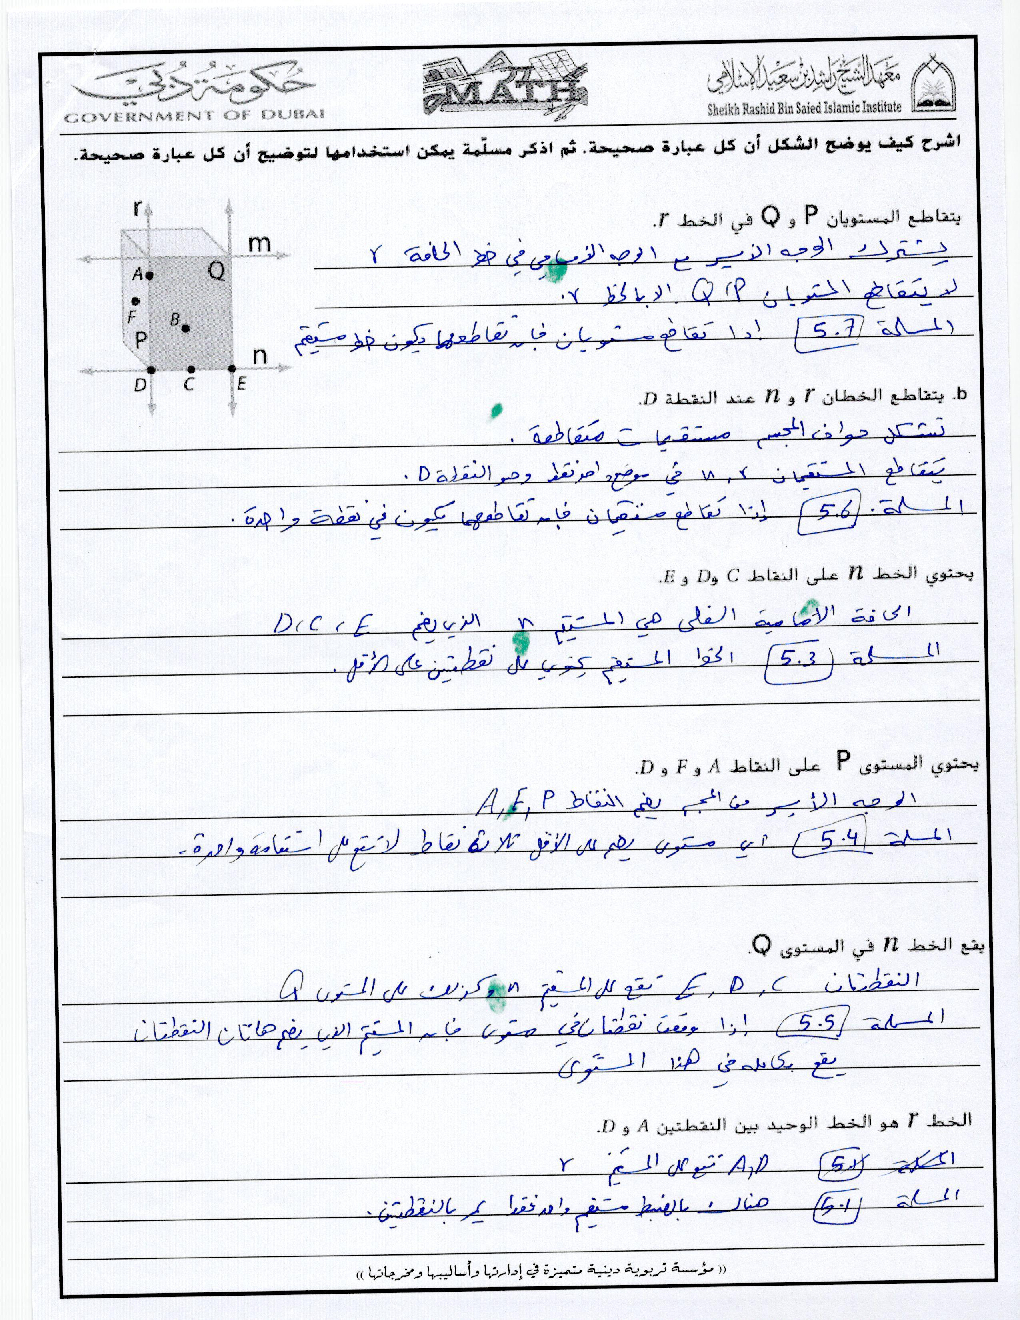 حكومة دبي
GOVERNMENT OF DUBAI
MATH
معهد الشيخ راشد بن سعيد الإسلامي
Sheikh Rashid Bin Saied Islamic Institute
اشرح كيف يوضح الشكل أن كل عبارة صحيحة. ثم اذكر مسلّمة يمكن استخدامها لتوضيح أن كل عبارة صحيحة.
r
m
A
Q
F
B
P
n
D
C
E
يتقاطع المستويان P و Q في الخط r.
يشترك الوجه الأيسر مع الوجه الأمامي في خط الحافة r
لا يتقاطع المستويان P، Q إلا بالخط r.
المسلمة 5.7 إذا تقاطع مستويان فإن تقاطعهما يكون خط مستقيم
b. يتقاطع الخطان r و n عند النقطة D.
تشكل حواف المجسم مستقيمات متقاطعة.
يتقاطع المستقيمان r، n في موضع واحد فقط وهو النقطة D.
المسلمة. 5.6 إذا تقاطع مستقيمان فإن تقاطعهما يكون في نقطة واحدة.
يحتوي الخط n على النقاط C وD و E.
الحافة الأمامية السفلى هي المستقيم n الذي يضم D، C، E
المسلمة 5.3 الخط المستقيم يحتوي على نقطتين على الأقل.
يحتوي المستوى P على النقاط A و F و D.
الوجه الأيسر من المجسم يضم النقاط A, F, P
المسلمة 5.4 أي مستوى يضم على الأقل ثلاثة نقاط لا تقع على استقامة واحدة.
يقع الخط n في المستوى Q.
النقطتان E، D، C تقع على المستقيم n وكذلك على المستوى Q
المسلمة 5.5 إذا وقعت نقطتان في مستوى فإن المستقيم الذي يضم هاتان النقطتان
يقع بكامله في هذا المستوى
الخط r هو الخط الوحيد بين النقطتين A و D.
المسلمة 5.1 A,D تقع على المستقيم r
المسلمة 5.1 هناك بالضبط مستقيم واحد فقط يمر بالنقطتين.
(( مؤسسة تربوية دينية متميزة في إدارتها وأساليبها ومخرجاتها ))